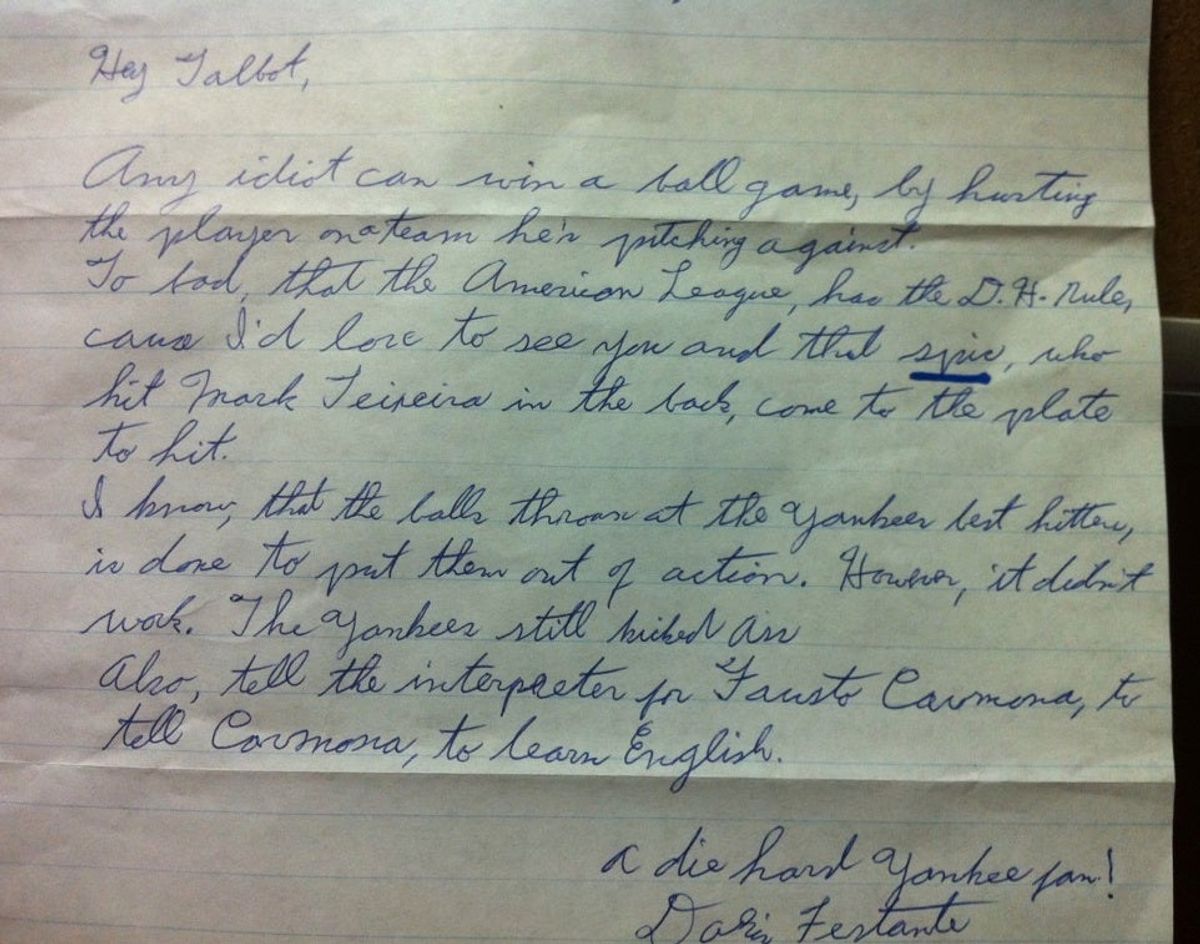 Hey Talbot,
Any idiot can win a ball game, by hurting
the player on a team he's pitching against.
To bad, that the American League, has the D.H. Rule,
cause I'd love to see you and that spic, who
hit Mark Teixeira in the back, come to the plate
to hit.
I know, that the balls thrown at the Yankees best hitters,
is done to put them out of action. However, it didn't
work. The Yankees still kicked Ass
Also, tell the interpreter for Fausto Carmona, to
tell Carmona, to learn English.
A die hard Yankee fan!
Festante